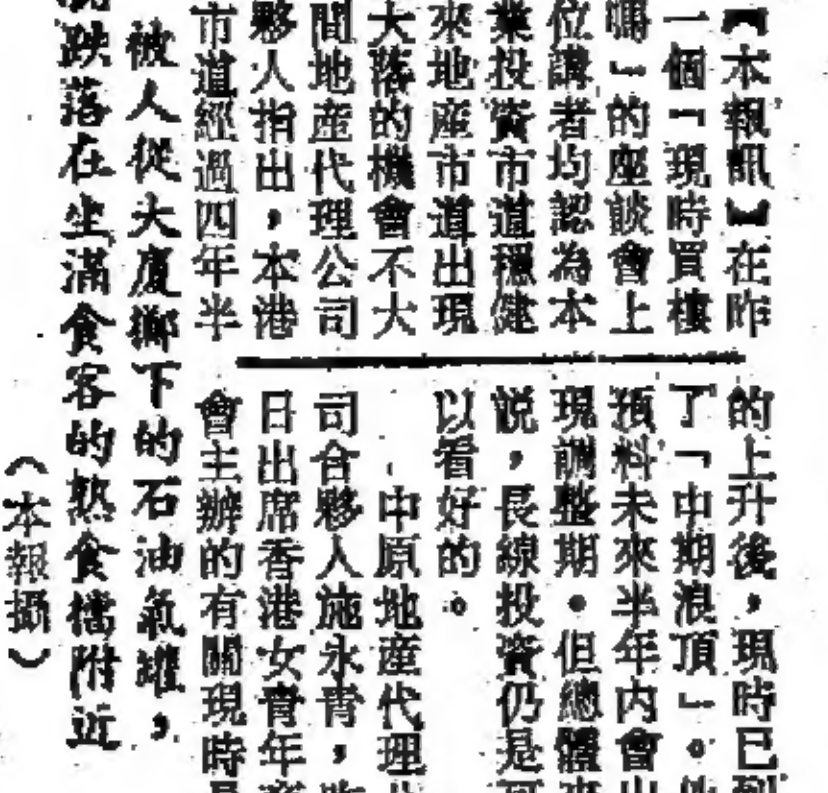 【本報訊】在昨
一個「現時買樓
嗎」的座談會上
位講者均認為本
業投資市道穩健
來地產市道出現
大落的機會不大
間地產代理公司
夥人指出，本港
市道經過四年半
的上升後，現時已到
了「中期浪頂」。他
預料未來半年內會出
現調整期。但總體來
説，長線投資仍是可
以看好的。
中原地產代理公
司合夥人施永青，昨
日出席香港女青年商
會主辦的有關現時
被人從大廈擲下的石油氣罐，
跌落在坐滿食客的熟食檔附近
（本報攝）